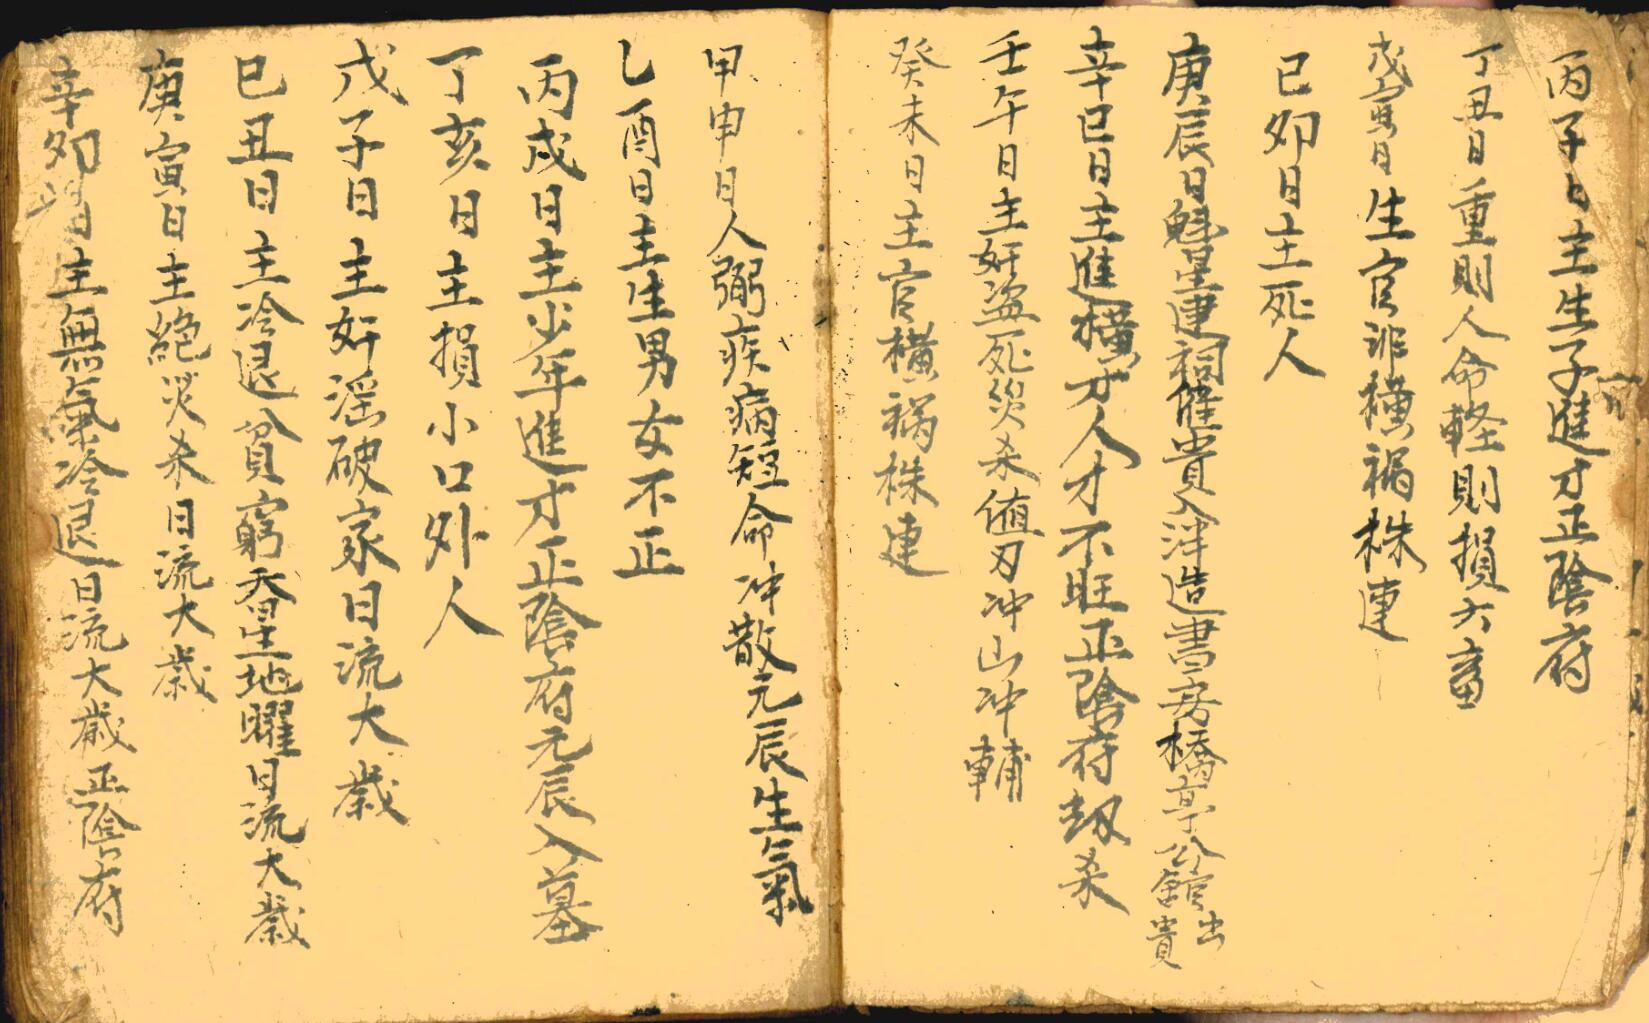 丙子日主生子進才正陰府
丁丑日重則人命輕則損六畜
戊寅日生官非橫禍株連
已卯日主死人
庚辰日魁星建祠催貴人津造書房橋亭公館出貴
辛巳日主進橫才人才不旺正陰府刼杀
壬午日主奸盗死災杀值刃冲山冲輔
癸未日主官橫禍株連
甲申日人弱疾病短命冲散元辰生氣
乙酉日主生男女不正
丙戌日主少年進才正陰府元辰入墓
丁亥日主損小口外人
戊子日主奸淫破家日流大歲
巳丑日主冷退貧窮吞星地曜日流大歲
庚寅日主絕災杀日流大歲
辛卯日主無氣冷退日流大歲正陰府